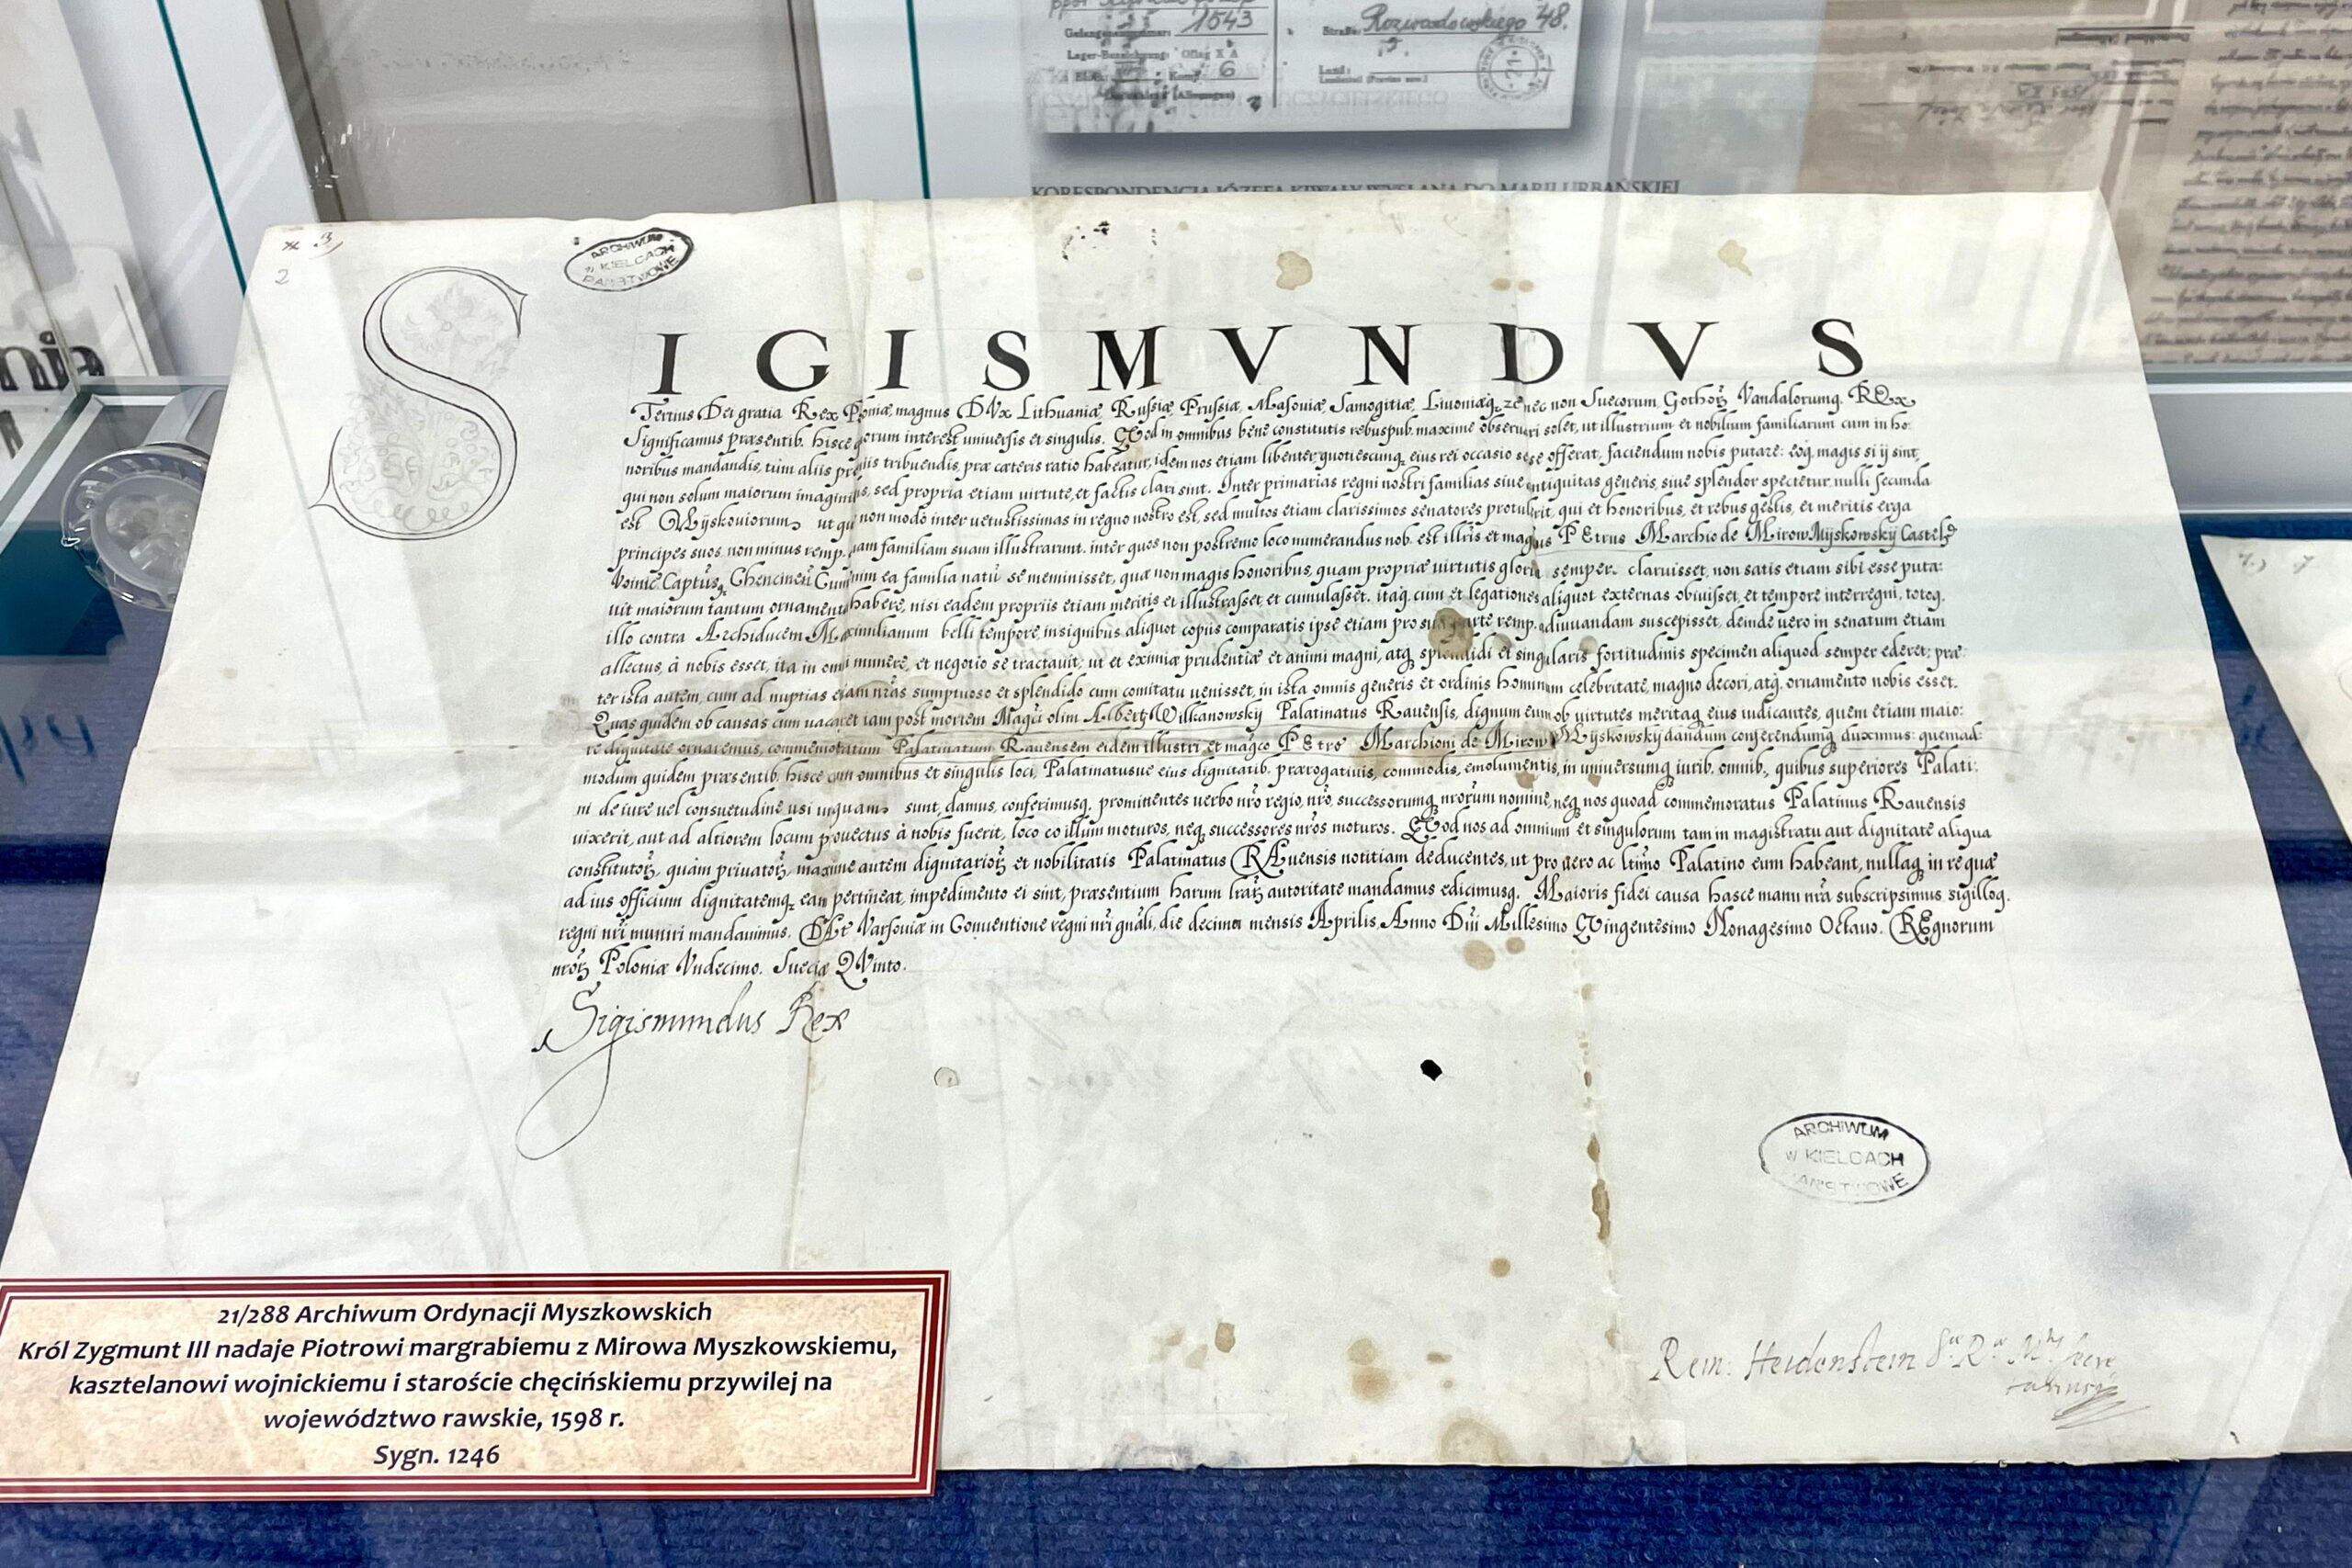 1543
Rozwadowskiego 48.
Gefangenennummer:
Straße:
Lager-Bezeichnung: Oflag X A
6
Land:
KORESPONDENCJA JÓZEFA KIWAŁY WYSŁANA DO MARII URBAŃSKIEJ
3
2
ARCHIWUM
w KIELCACH
PAŃSTWOWE
SIGISMVNDVS
Tertius Dei gratia Rex Poloniæ, magnus DVx Lithuaniæ, Rußiæ, Prußiæ, Masouiæ, Samogitiæ, Liuoniæq; nec non Suecorum, Gothorꝝ Vandalorumq; REx
Significamus præsentib. hisce quorum interest uniuersis et singulis. QVod in omnibus bene constitutis rebuspub. maxime obseruari solet, ut illustrium et nobilium familiarum cum in ho:
noribus mandandis, tum aliis præmiis tribuendis, præ cæteris ratio habeatur, idem nos etiam libenter, quotiescunq; eius rei occasio sese offerat, faciendum nobis putare: eoq; magis si ij sint,
qui non solum maiorum imaginibus, sed propria etiam virtute, et factis clari sint. Inter primarias regni nostri familias siue antiquitas generis, siue splendor spectetur, nulli secunda
est Myskouiorum ut quæ non modo inter uetustissimas in regno nostro est, sed multos etiam clarissimos senatores protulerit, qui et honoribus, et rebus gestis, et meritis erga
principes suos, non minus remp. quam familiam suam illustrarunt. inter quos non postremo loco numerandus nob. est illris et magcus PEtrus Marchio de Mirow Myskowskij Castels
Voinic Captus, Chencineñ Cum enim ea familia natũ se meminisset, quæ non magis honoribus, quam propriæ virtutis gloria semper claruisset, non satis etiam sibi esse puta:
uit maiorum tantum ornamenta habere, nisi eadem propriis etiam meritis et illustrasset, et cumulasset. itaq; cum et legationes aliquot externas obiuisset, et tempore interregni, totoq;
illo contra Archiducem Maximilianum belli tempore, insignibus aliquot copiis comparatis ipse etiam pro sua parte remp. adiuuandam suscepisset, deinde uero in senatum etiam
allectus, à nobis esset, ita in omni munere, et negotio se tractauit, ut et eximiæ prudentiæ et animi magni, atq; splendidi et singularis fortitudinis specimen aliquod semper ederet; præ:
ter ista autem, cum ad nuptias etiam nras sumptuoso et splendido cum comitatu uenisset, in ista omnis generis et ordinis hominum celebritate, magno decori, atq; ornamento nobis esset.
Quas quidem ob causas cum uacaret iam post mortem Magci olim Alberti Wilkanowskij Palatinatus Rauensis, dignum eum ob virtutes meritaq; eius iudicantes, quem etiam maio:
re dignitate ornaremus, commemoratum Palatinatum Rauensem eidem illustri et magco PEtro Marchioni de Mirow Myskowskij dandum conferendumq; duximus: quemad:
modum quidem præsentib. hisce cum omnibus et singulis loci, Palatinatusue eius dignitatib. prærogatiuis, commodis, emolumentis, in uniuersumq; iurib. omnib., quibus superiores Palati:
ni de iure uel consuetudine usi unquam sunt, damus, conferimusq; promittentes uerbo nro regio, nro, successorumq; nrorum nomine, neq; nos quoad commemoratus Palatinus Rauensis
uixerit, aut ad altiorem locum prouectus à nobis fuerit, loco eo illum moturos, neq; successores nros moturos. QVod nos ad omnium et singulorum tam in magistratu aut dignitate aliqua
constitutorꝝ, quàm priuatorꝝ, maxime autem dignitariorꝝ et nobilitatis Palatinatus RAuensis notitiam deducentes, ut pro uero ac ltimo Palatino eum habeant, nullaq; in re quæ
ad ius officium dignitatemq; eam pertineat, impedimento ei sint, præsentium harum lrarꝝ autoritate mandamus edicimusq; Maioris fidei causa hasce manu nra subscripsimus sigilloq;
regni nri muniri mandauimus. DAt Varsouiæ in Conuentione regni nri gnali, die decima mensis Aprilis, Anno Dni Millesimo QVingentesimo Nonagesimo Octauo. REgnorum
nrorꝝ Poloniæ Vndecimo. Sueciæ QVinto.
Sigismundus Rex
ARCHIWUM
w KIELCACH
PAŃSTWOWE
Rem: Heidenstein
21/288 Archiwum Ordynacji Myszkowskich
Król Zygmunt III nadaje Piotrowi margrabiemu z Mirowa Myszkowskiemu,
kasztelanowi wojnickiemu i staroście chęcińskiemu przywilej na
województwo rawskie, 1598 r.
Sygn. 1246